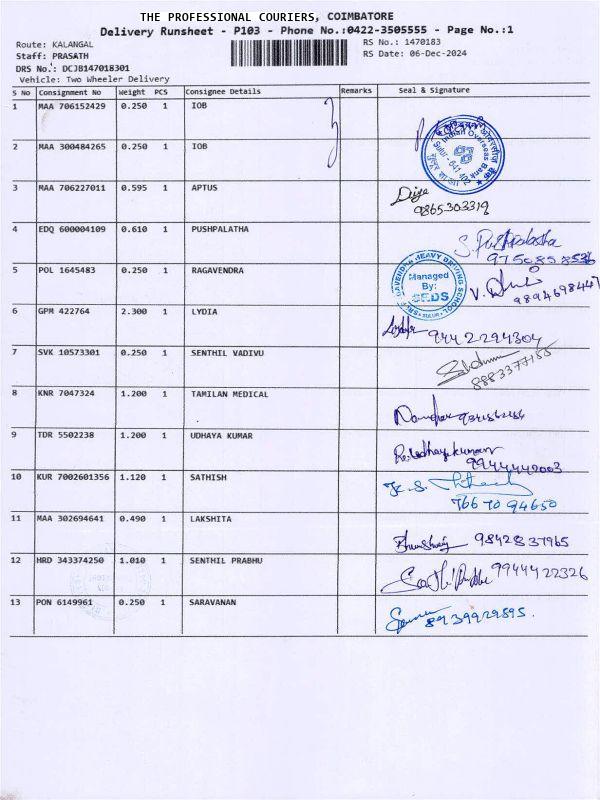 THE PROFESSIONAL COURIERS, COIMBATORE
Delivery Runsheet - P103 - Phone No.:0422-3505555 - Page No.:1
Route: KALANGAL
RS No.: 1470183
Staff: PRASATH
RS Date: 06-Dec-2024
DRS No.: DCJB147018301
Vehicle: Two Wheeler Delivery
S No Consignment No Weight PCS Consignee Details Remarks Seal & Signature
1 MAA 706152429 0.250 1 IOB
2 MAA 300484265 0.250 1 IOB
Indian Overseas Bank
3 MAA 706227011 0.595 1 APTUS
9865303319
4 EDQ 600004109 0.610 1 PUSHPALATHA S. Pushpalatha
9750858536
5 POL 1645483 0.250 1 RAGAVENDRA
HEAVY DRIVING SCHOOL
Managed
By:
SEDS
SULUR
6 GPM 422764 2.300 1 LYDIA
9442294304
7 SVK 10573301 0.250 1 SENTHIL VADIVU
8883377188
8 KNR 7047324 1.200 1 TAMILAN MEDICAL
9 TDR 5502238 1.200 1 UDHAYA KUMAR
9944442003
10 KUR 7002601356 1.120 1 SATHISH
76670 94650
11 MAA 302694641 0.490 1 LAKSHITA
9842837965
12 HRD 343374250 1.010 1 SENTHIL PRABHU
9944422326
13 PON 6149961 0.250 1 SARAVANAN
8939929895.